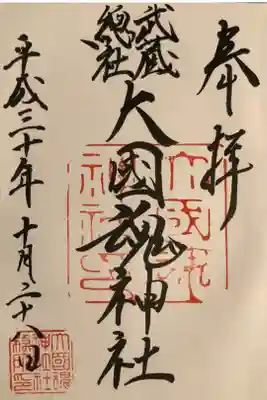 奉拝
武蔵
総社
大國魂神社
平成三十年十月二十八日